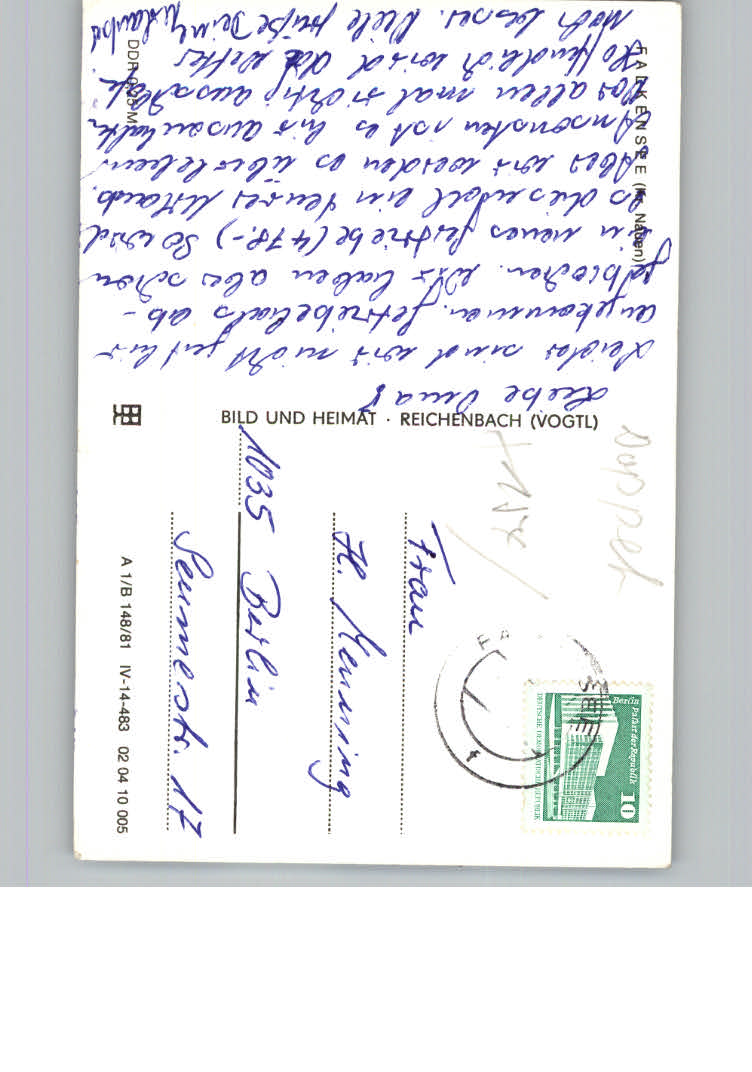 FALKENSEE (Kr. Nauen)
Liebe Oma!
Leider sind wir nicht gut hier
angekommen. Getriebehals ab-
gebrochen. Wir haben aber schon
ein neues Getriebe (478.-) So wird
es diesmal ein teures Urlaub.
Aber wir werden es überleben.
Ansonsten ist es hier auszuhalten
Vor allem mal richtig
Hoffentlich wird das Wetter
noch besser. Viele Grüße Deine
DDR
BILD UND HEIMAT · REICHENBACH (VOGTL)
Doppel
Frau
H. Henning
1035 Berlin
Seumestr. 17
A 1/B 148/81 IV-14-483 02 04 10 005
Berlin
Palast der Republik
10
DEUTSCHE DEMOKRATISCHE REPUBLIK
FA SEE